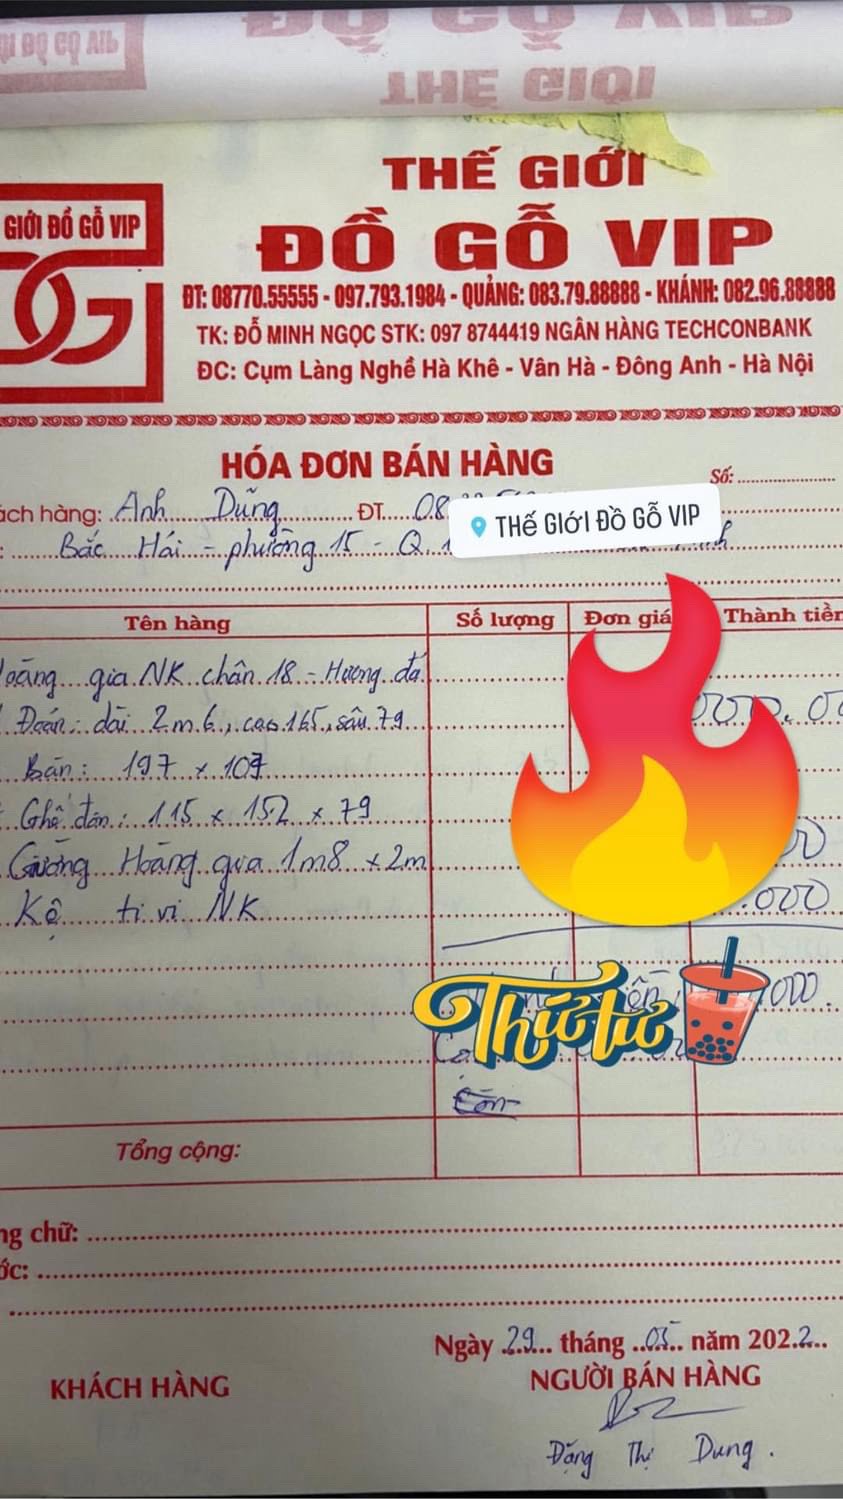 THẾ GIỚI
ĐỒ GỖ VIP
THẾ GIỚI
GIỚI ĐỒ GỖ VIP
ĐỒ GỖ VIP
ĐT: 08770.55555 - 097.793.1984 - QUẢNG: 083.79.88888 - KHÁNH: 082.96.88888
TK: ĐỖ MINH NGỌC STK: 097 8744419 NGÂN HÀNG TECHCONBANK
ĐC: Cụm Làng Nghề Hà Khê - Vân Hà - Đông Anh - Hà Nội
HÓA ĐƠN BÁN HÀNG
Số:
ách hàng: Anh Dũng ĐT 08
THế GIớI Đồ Gỗ VIP
Bắc Hải - phường 15 - Q.
Tên hàng Số lượng Đơn giá Thành tiền
Hoàng gia NK chân 18 - Hương đá
Đoản: dài 2m6, cao 165, sâu 79
000.00
Bàn: 197 x 107
Ghế đơn: 115 x 152 x 79
Giường Hoàng gia 1m8 x 2m
00
Kệ ti vi NK .000
.000.
Thứ tư
Tổng cộng:
ng chữ:
ớc:
Ngày 29 tháng 05 năm 2022
KHÁCH HÀNG NGƯỜI BÁN HÀNG
Đặng Thị Dung.